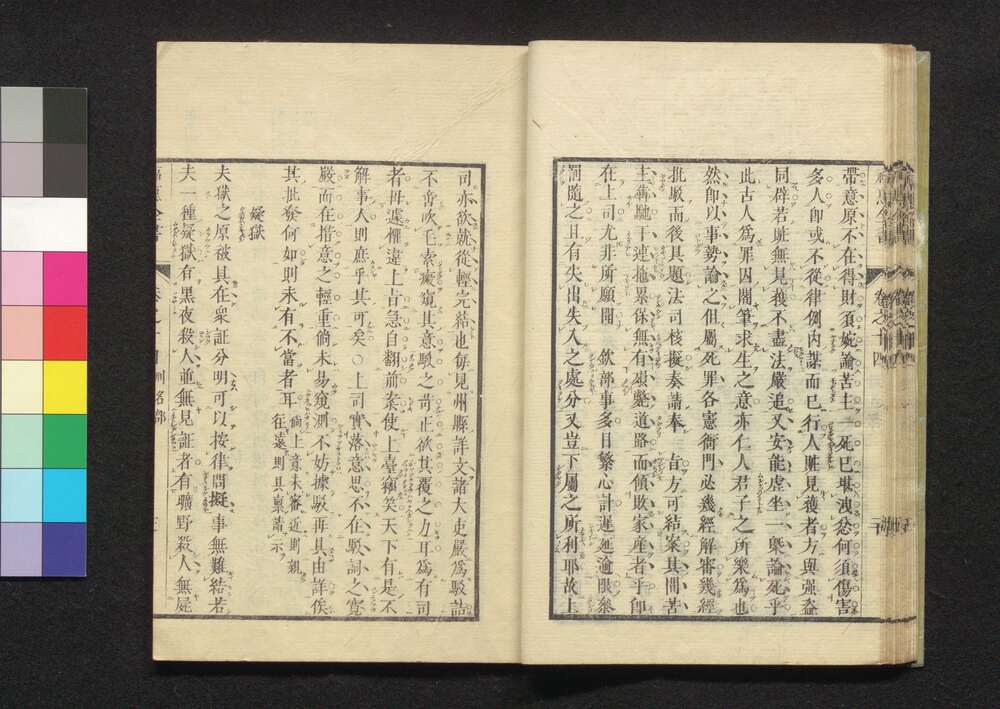 帶意原不在得財須婉諭苦主一死已堪洩忿何須傷害
多人卽或不從律例内謀而已行人贓見獲者方與强盗
同辟若贓無見獲不盡法嚴追又安能虛坐一槩論死乎
此古人爲罪囚閣筆求生之意亦仁人君子之所樂爲也
然卽以事勢論之但屬死罪各憲衙門必幾經解審幾經
批駁而後具題法司核擬奏請奉 旨方可結案其間苦
主犇馳干連拖累保無有殞斃道路而傾敗家産者乎卽
在上司尤非所願聞 欽部事多日繁心計遲延逾限叅
罰隨之且有失出失入之處分又豈下屬之所利耶故上
福惠全書 卷之十四
司亦欲就從輕完結也每見州縣詳文諸大吏嚴爲駁詰
不啻吹毛索瘢窺其意駁之苛正欲其覆之力耳爲有司
者毋遽懼違上旨急自翻前案使上臺竊笑天下有是不
解事人則庶乎其可矣○上司實落意思不在駁詞之寛
嚴而在揩意之輕重倘未易窺測不妨據駁再具由詳俟
其批發何如則未有不當者耳 倘上意未審近則親
往遠則具稟請示
疑獄
夫獄之原被具在衆証分明可以按律問擬事無難結若
夫一種疑獄有黑夜殺人並無見証者有曠野殺人無屍
福惠全書 卷之十四 刑名部